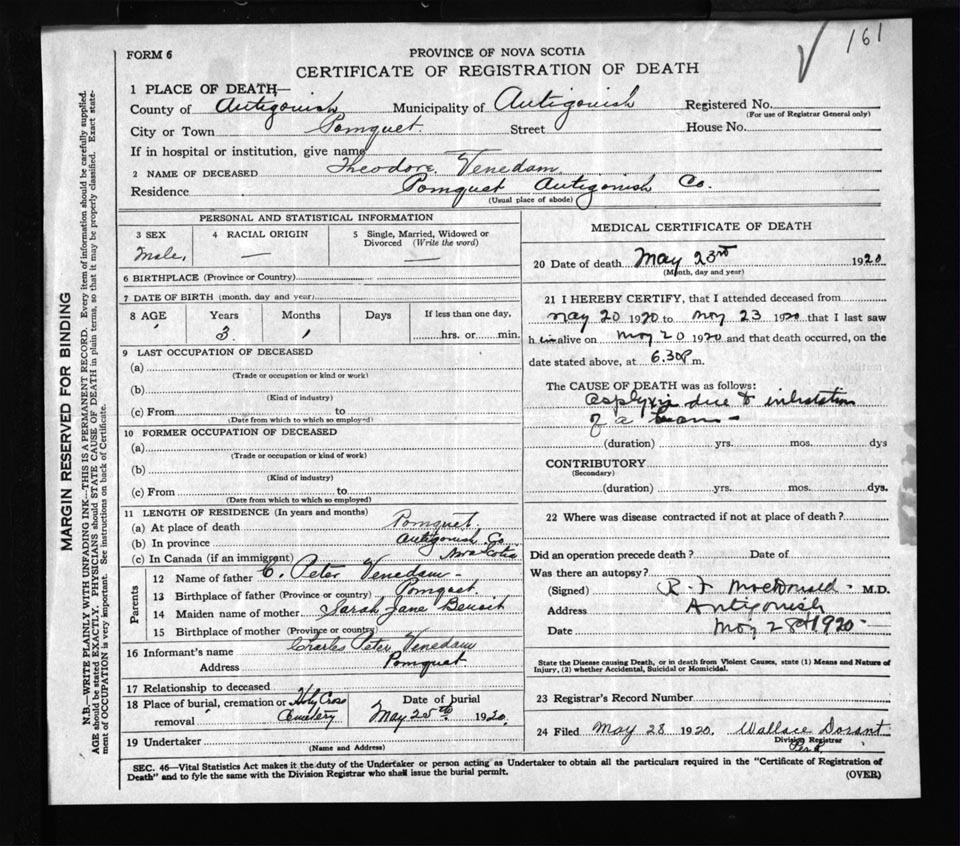 161
FORM 6
PROVINCE OF NOVA SCOTIA
CERTIFICATE OF REGISTRATION OF DEATH
1 PLACE OF DEATH—
County of Antigonish Municipality of Antigonish Registered No.
(For use of Registrar General only)
City or Town Pomquet. Street House No.
If in hospital or institution, give name
2 NAME OF DECEASED Theodore Venedam
Residence Pomquet Antigonish Co.
(Usual place of abode)
PERSONAL AND STATISTICAL INFORMATION
3 SEX 4 RACIAL ORIGIN 5 Single, Married, Widowed or
Divorced (Write the word)
Male, — —
6 BIRTHPLACE (Province or Country)
7 DATE OF BIRTH (month, day and year)
8 AGE Years Months Days If less than one day,
3 1 hrs. or min.
9 LAST OCCUPATION OF DECEASED
(a)
(Trade or occupation or kind or work)
(b)
(Kind of industry)
(c) From to
(Date from which to which so employed)
10 FORMER OCCUPATION OF DECEASED
(a)
(Trade or occupation or kind of work)
(b)
(Kind of industry)
(c) From to
(Date from which to which so employed)
11 LENGTH OF RESIDENCE (In years and months)
(a) At place of death Pomquet.
(b) In province Antigonish Co
(c) In Canada (if an immigrant) Nova Scotia
Parents
12 Name of father C. Peter Venedam -
13 Birthplace of father (Province or country) Pomquet.
14 Maiden name of mother Sarah Jane Benoit
15 Birthplace of mother (Province or country)
16 Informant's name Charles Peter Venedam
Address Pomquet
17 Relationship to deceased
18 Place of burial, cremation or Holy Cross Date of burial
removal Cemetery May 25th 1920.
19 Undertaker
(Name and Address)
MEDICAL CERTIFICATE OF DEATH
20 Date of death May 23rd 1920
(Month, day and year)
21 I HEREBY CERTIFY, that I attended deceased from
May 20 1920 to May 23 1920 that I last saw
h im alive on May 20 1920 and that death occurred, on the
date stated above, at 6.30P m.
The CAUSE OF DEATH was as follows:
due to
of a
(duration) yrs. mos. dys
CONTRIBUTORY
(Secondary)
(duration) yrs. mos. dys.
22 Where was disease contracted if not at place of death?
Did an operation precede death? Date of
Was there an autopsy?
(Signed) R. F. MacDonald - M.D.
Address Antigonish
Date May 28th 1920 -
State the Disease causing Death, or in death from Violent Causes, state (1) Means and Nature of
Injury, (2) whether Accidental, Suicidal or Homicidal.
23 Registrar's Record Number
24 Filed May 28 1920. Wallace Dorant
Division Registrar
SEC. 46—Vital Statistics Act makes it the duty of the Undertaker or person acting as Undertaker to obtain all the particulars required in the "Certificate of Registration of
Death" and to fyle the same with the Division Registrar who shall issue the burial permit.
(OVER)
MARGIN RESERVED FOR BINDING
N.B.—WRITE PLAINLY WITH UNFADING INK—THIS IS A PERMANENT RECORD. Every item of information should be carefully supplied.
AGE should be stated EXACTLY. PHYSICIANS should STATE CAUSE OF DEATH in plain terms, so that it may be properly classified. Exact state-
ment of OCCUPATION is very important. See instructions on back of Certificate.